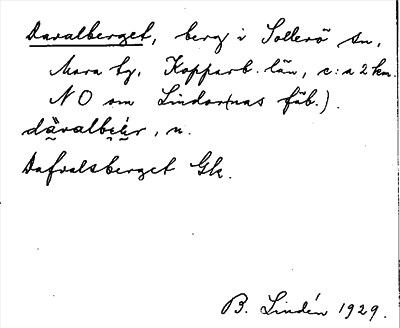 Davalberget, berg i Sollerö sn,
Mora tg. Kopparb. län, c:a 2 km.
NO om Lindor(nas fäb.).
dàvalbɛ̀r, n.
Dafvalsberget Gk.
B. Lindén 1929.